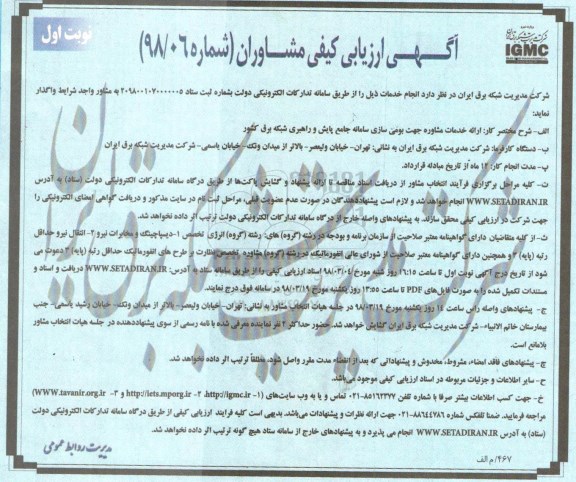 نوبت اول
آگهی ارزیابی کیفی مشاوران (شماره ۹۸/۰۶)
شرکت مدیریت شبکه برق ایران
IGMC
شرکت مدیریت شبکه برق ایران در نظر دارد انجام خدمات ذیل را از طریق سامانه تدارکات الکترونیکی دولت بشماره ثبت ستاد ۲۰۹۸۰۰۱۰۲۰۰۰۰۰۵ به مشاور واجد شرایط واگذار
نماید:
الف- شرح مختصر کار: ارائه خدمات مشاوره جهت بومی سازی سامانه جامع پایش و راهبری شبکه برق کشور
ب- دستگاه کارفرما: شرکت مدیریت شبکه برق ایران به نشانی: تهران- خیابان ولیعصر- بالاتر از میدان ونک- خیابان یاسمی- شرکت مدیریت شبکه برق ایران
پ- مدت انجام کار: ۱۲ ماه از تاریخ مبادله قرارداد.
ت- کلیه مراحل برگزاری فرآیند انتخاب مشاور از دریافت اسناد مناقصه تا ارائه پیشنهاد و گشایش پاکت‌ها از طریق درگاه سامانه تدارکات الکترونیکی دولت (ستاد) به آدرس
WWW.SETADIRAN.IR انجام خواهد شد و لازم است پیشنهاددهندگان در صورت عدم عضویت قبلی، مراحل ثبت نام در سایت مذکور و دریافت گواهی امضای الکترونیکی را
جهت شرکت در ارزیابی کیفی محقق سازند. به پیشنهادهای واصله خارج از درگاه سامانه تدارکات الکترونیکی دولت ترتیب اثر داده نخواهد شد.
ث- از کلیه متقاضیان دارای گواهینامه معتبر صلاحیت از سازمان برنامه و بودجه در رشته (گروه) های: رشته (گروه) انرژی تخصص ۱-دیسپاچینگ و مخابرات نیرو ۲- انتقال نیرو حداقل
رتبه (پایه) ۳ و همچنین دارای گواهینامه معتبر صلاحیت از شورای عالی انفورماتیک در رشته (گروه) مشاوره تخصص نظارت بر طرح های انفورماتیک حداقل رتبه (پایه) ۳ دعوت می
شود از تاریخ درج آگهی نوبت اول تا ساعت ۱۶:۱۵ روز شنبه مورخ ۹۸/۰۳/۰۴ اسناد ارزیابی کیفی را از طریق سامانه ستاد به آدرس: WWW.SETADIRAN.IR دریافت و اسناد و
مستندات تکمیل شده را به صورت فایل‌های PDF تا ساعت ۱۳:۵۵ روز یکشنبه مورخ ۹۸/۰۳/۱۹ در سامانه فوق درج نمایند.
ج- پیشنهادهای واصله راس ساعت ۱۴ روز یکشنبه مورخ ۹۸/۰۳/۱۹ در جلسه هیات انتخاب مشاور به نشانی: تهران- خیابان ولیعصر- بالاتر از میدان ونک- خیابان رشید یاسمی- جنب
بیمارستان خاتم الانبیاء- شرکت مدیریت شبکه برق ایران گشایش خواهد شد. حضور حداکثر ۲ نفر نماینده معرفی شده با نامه رسمی از سوی پیشنهاددهنده در جلسه هیات انتخاب مشاور
بلامانع است.
چ- پیشنهادهای فاقد امضاء، مشروط، مخدوش و پیشنهاداتی که بعد از انقضاء مدت مقرر واصل شود، مطلقاً ترتیب اثر داده نخواهد شد.
ح- سایر اطلاعات و جزئیات مربوطه در اسناد ارزیابی کیفی موجود می‌باشد.
خ- جهت کسب اطلاعات بیشتر صرفا با شماره تلفن ۸۵۱۶۲۳۷۷-۰۲۱ تماس و یا به وب سایت‌های (۱- http://igmc.ir، ۲- http://iets.mporg.ir و ۳- WWW.tavanir.org.ir)
مراجعه فرمایید. ضمنا تلفکس شماره ۸۸۶۴۴۷۸۶-۰۲۱ جهت ارائه نظرات و پیشنهادات می‌باشد. بدیهی است کلیه فرایند ارزیابی کیفی از طریق درگاه سامانه تدارکات الکترونیکی دولت
(ستاد) به آدرس WWW.SETADIRAN.IR انجام می پذیرد و به پیشنهادهای خارج از سامانه ستاد هیچ گونه ترتیب اثر داده نخواهد شد.
مدیریت روابط عمومی
۴۶۷/م الف